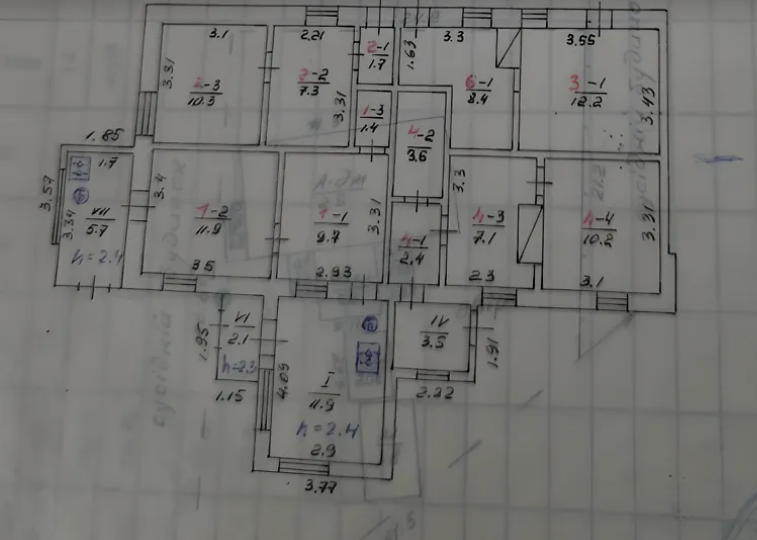 3.1
2.21
2-1
1.7
1.63
3.3
3.55
3.31
2-3
10.3
2-2
7.3
3.31
6-1
8.4
3-1
12.2
3.43
1-3
1.4
4-2
3.6
1.85
1.7
3.57
3.34
VII
5.7
h=2.4
3.4
1-2
11.9
3.5
1-1
9.7
3.31
2.93
4-1
2.4
3.3
4-3
7.1
2.3
4-4
10.2
3.31
3.1
VI
2.1
h=2.3
1.95
1.15
4.09
I
11.9
h=2.4
2.9
3.77
IV
3.5
1.91
2.22
сусідній